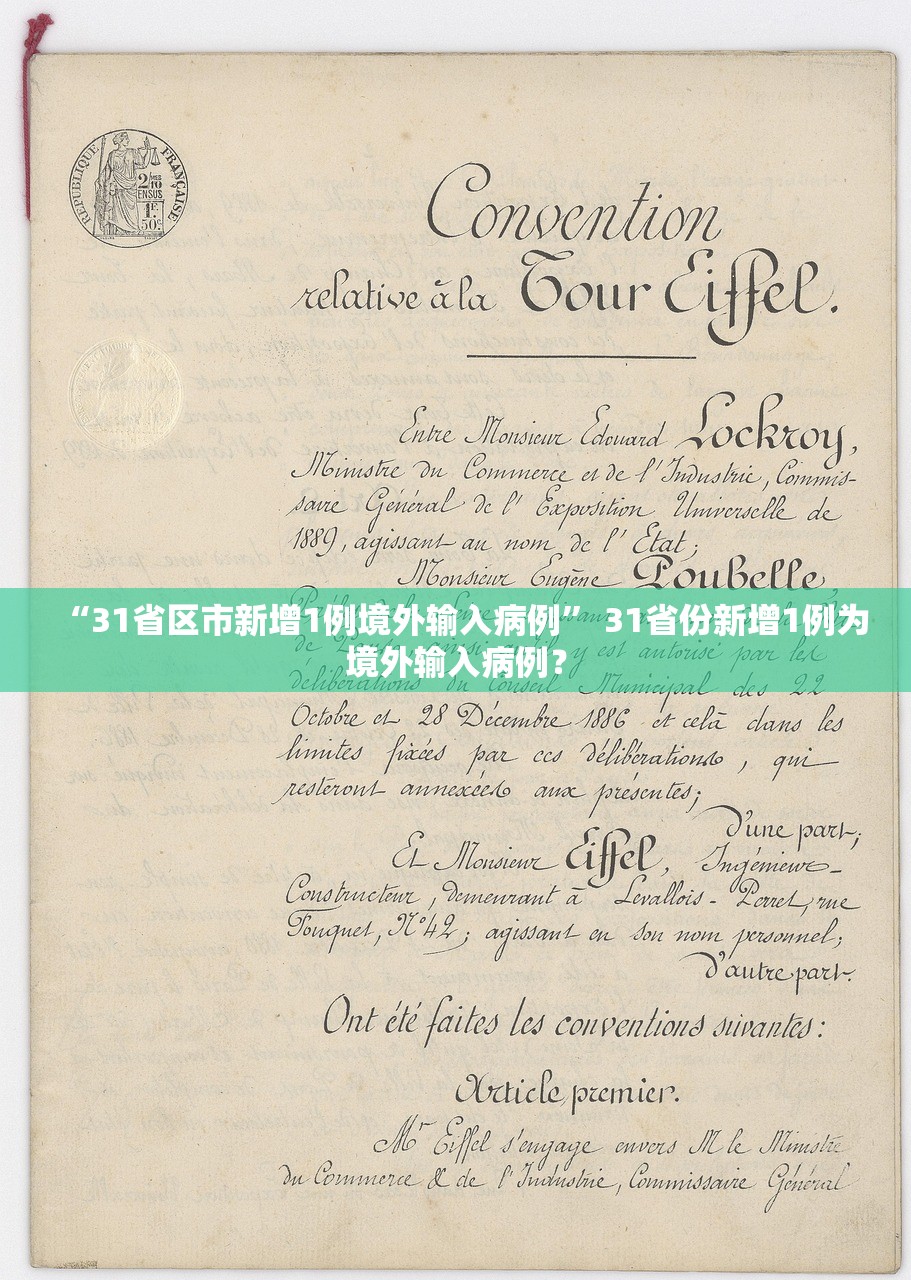 RÉPUBLIQUE FRANÇAISE
2/10
EN SUS
1F.
50c
Convention
relative à la Tour Eiffel.
Entre Monsieur Edouard Lockroy,
Ministre du Commerce et de l'Industrie, Commis-
saire Général de l'Exposition Universelle de
1889, agissant au nom de l'Etat;
Monsieur Eugène Poubelle,
“31省区市新增1例境外输入病例” 31省份新增1例为
境外输入病例？
y est autorisé par les
délibérations du Conseil Municipal des 22
Octobre et 28 Décembre 1886 et celà dans les
limites fixées par ces délibérations, qui
resteront annexées aux présentes;
d'une part;
Et Monsieur Eiffel, Ingénieur-
Constructeur, demeurant à Levallois-Perret, rue
Fouquet, N° 42; agissant en son nom personnel;
d'autre part.
Ont été faites les conventions suivantes:
Article premier.
Mr Eiffel s'engage envers M le Ministre
du Commerce & de l'Industrie, Commissaire Général